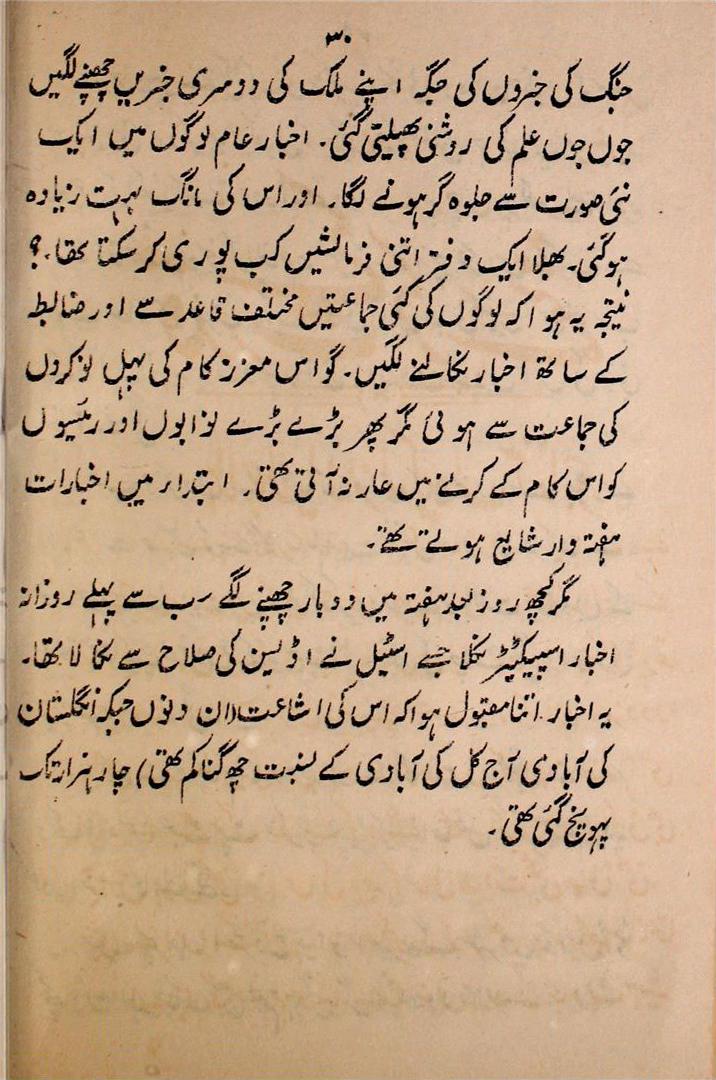 ۳۰
جنگ کی خبروں کی جگہ اپنے ملک کی دوسری خبریں چھپنے لگیں
جوں جوں علم کی روشنی پھیلیتی گئی۔ اخبار عام لوگوں میں ایک
نئی صورت سے جلوہ گر ہونے لگا۔ اور اس کی مانگ بہت زیادہ
ہو گئی۔ بھلا ایک دفتر اتنی فرمائشیں کب پوری کر سکتا تھا۔؟
نیتجہ یہ ہوا کہ لوگوں کی کئی جماعتیں مختلف قاعدے سے اور ضابطہ
کے ساتھ اخبار نکالنے لگیں۔ گو اس معزز کام کی پہل نوکروں
کی جماعت سے ہوئی مگر پھر بڑے بڑے نوابوں اور رئیسوں
کو اس کام کے کرنے میں عار نہ آتی تھی۔ ابتداء میں اخبارات
ہفتہ وار شایع ہوتے تھے۔
مگر کچھ روز بعد ہفتہ میں دو بار چھپنے لگے سب سے پہلے روزانہ
اخبار اسپیکٹیٹر نکلا جسے اسٹیل نے اڈیسن کی صلاح سے نکالا تھا۔
یہ اخبار اتنا مقبول ہوا کہ اس کی اشاعت (ان دنوں جبکہ انگلستان
کی آبادی آج کل کی آبادی کے نسبت چھ گنا کم تھی) چار ہزار تک
پہونچ گئی تھی۔